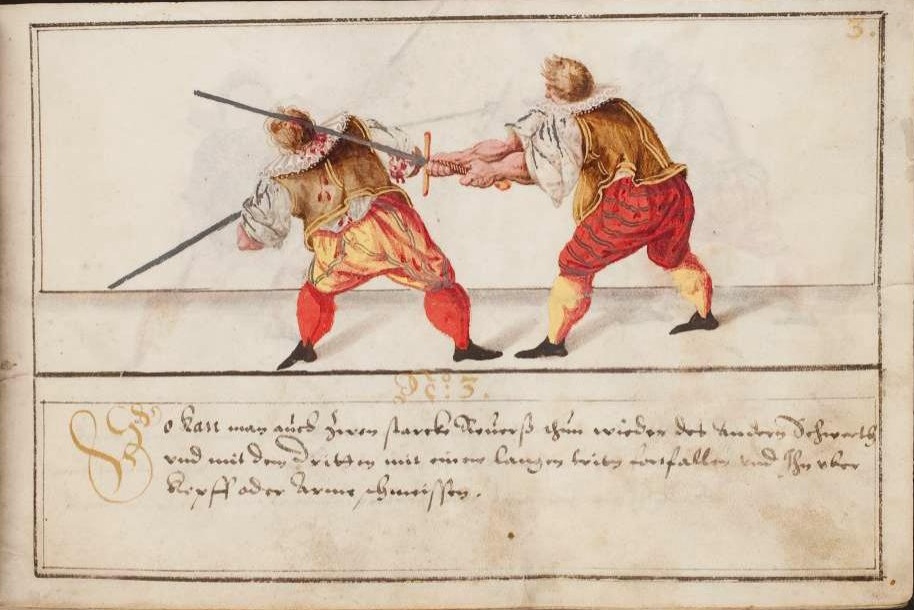 3.
No. 3.
So kan man auch zwen starcke Reverß thun wieder des andern Schwerth
und mit dem Dritten mit einem langen trit fortfallen und Ihn vber
Kopff oder Arme schmeissen.